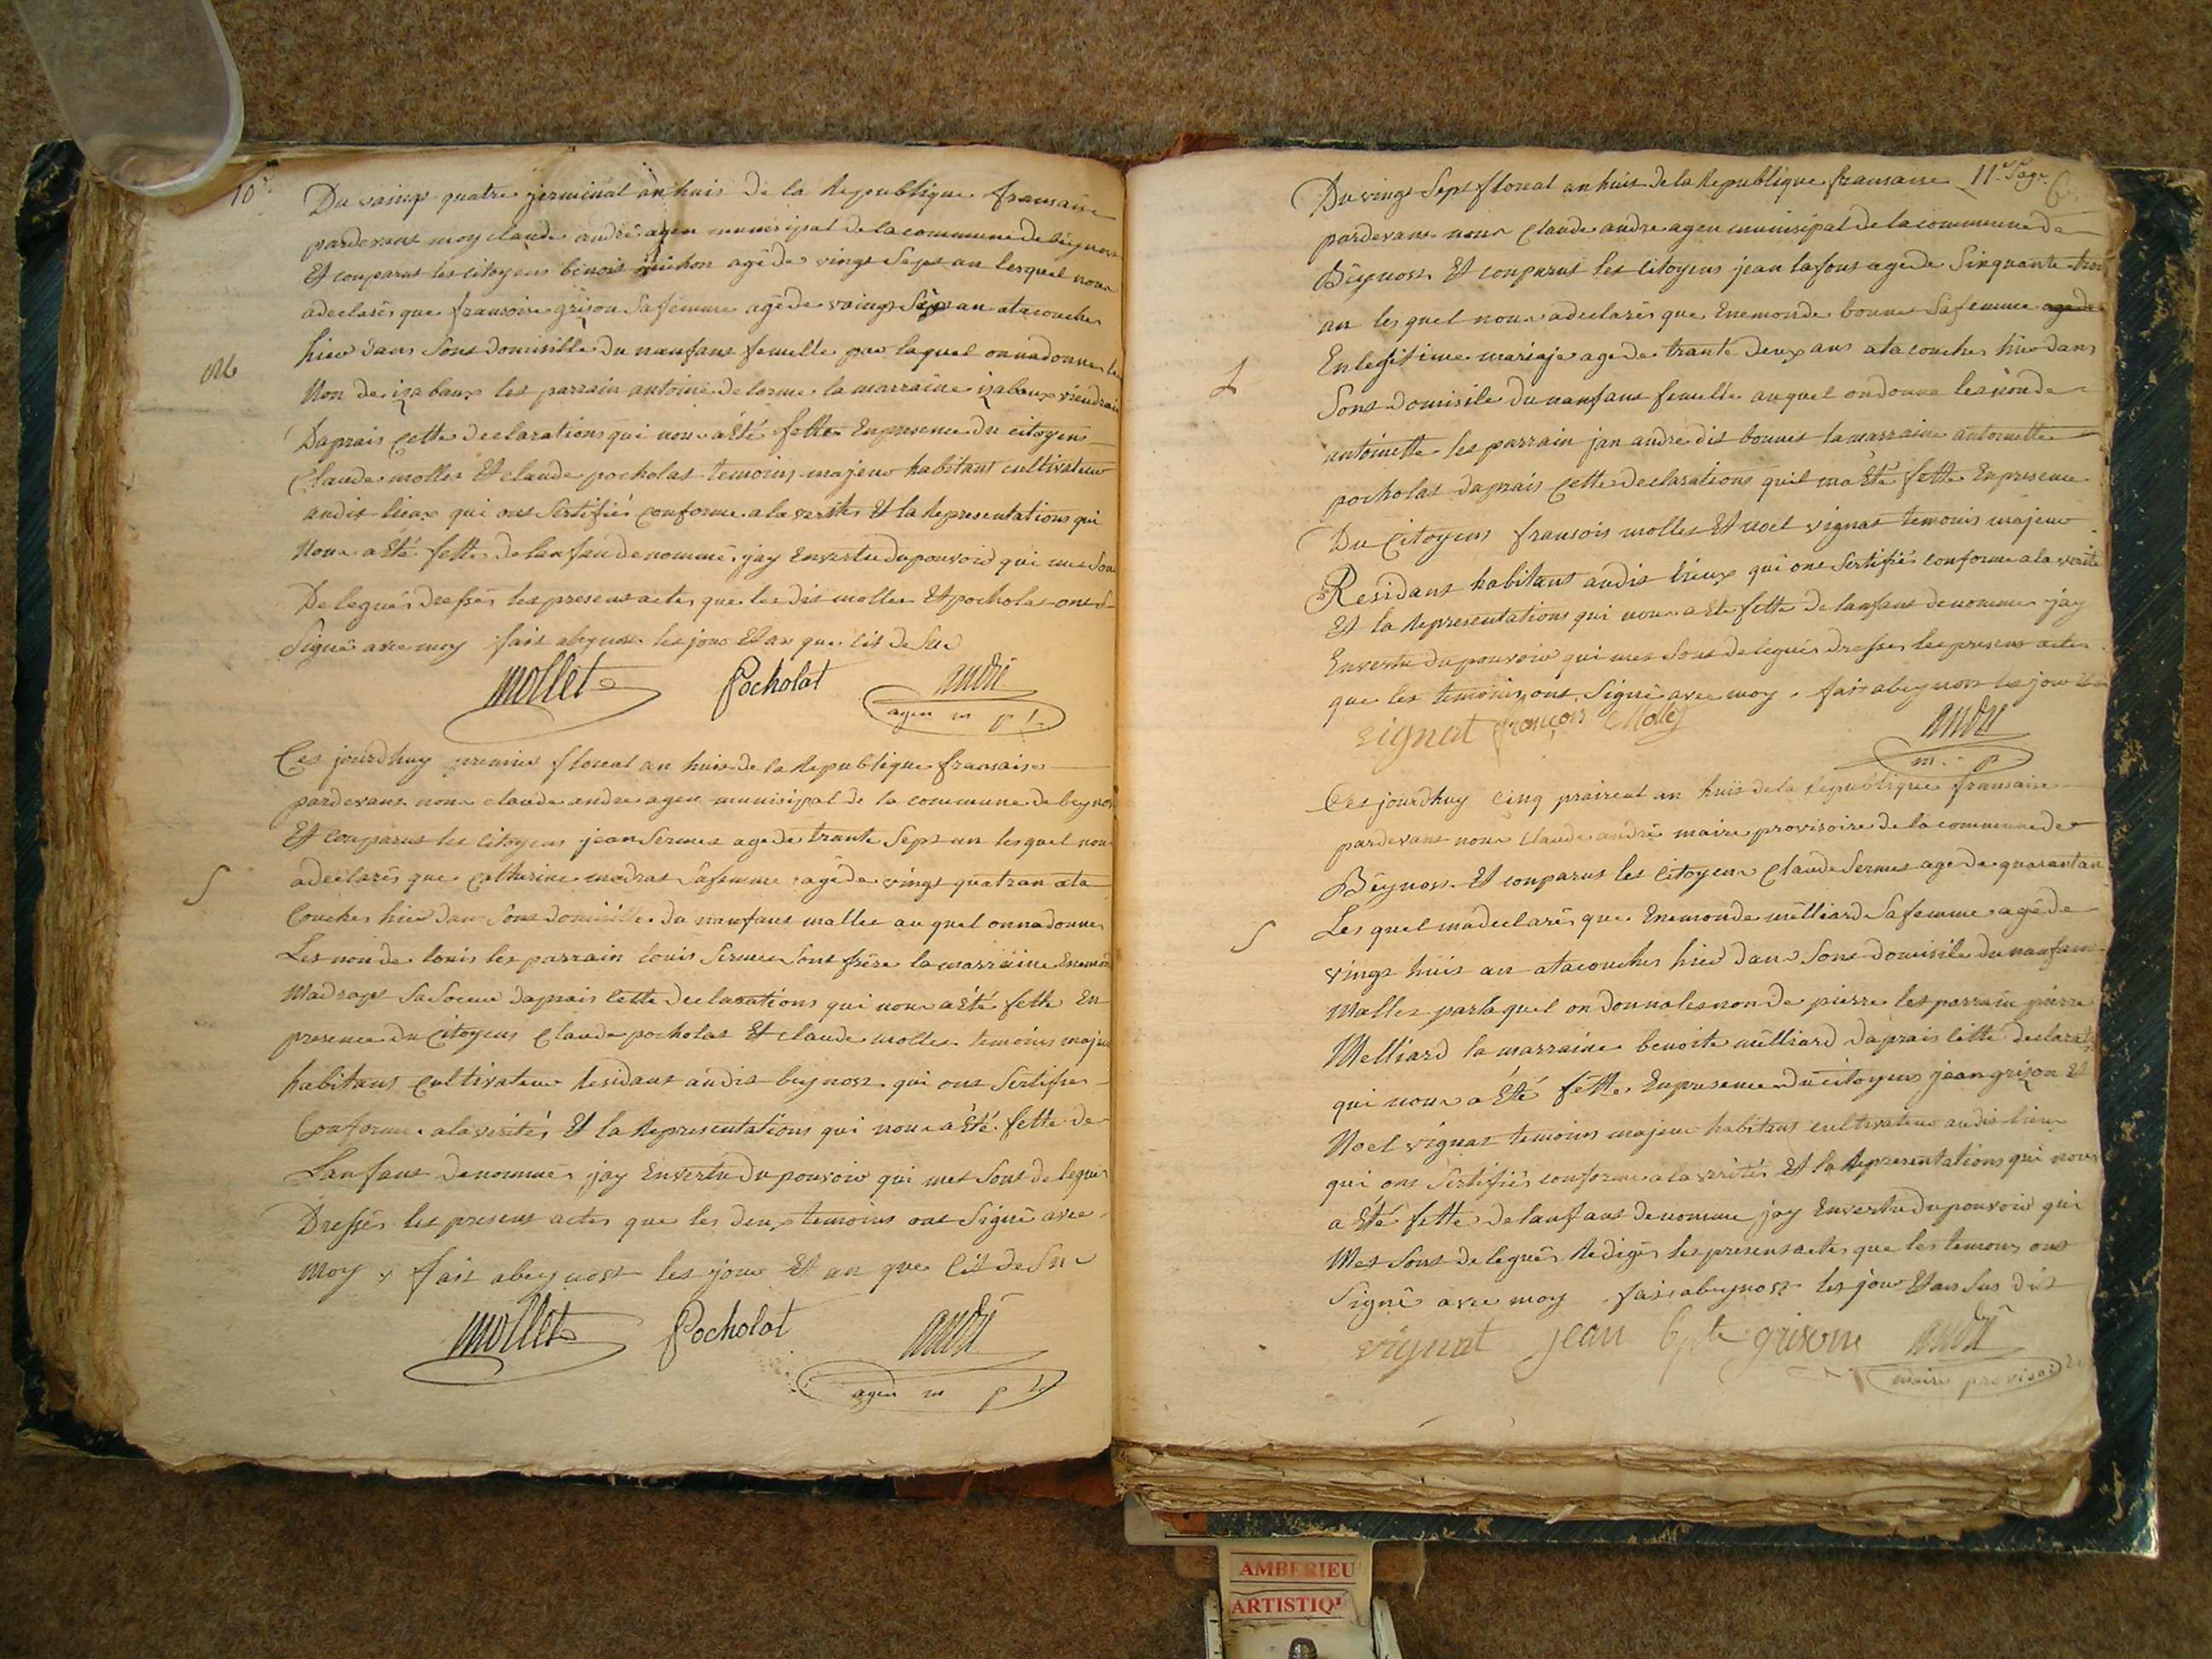 10e
Du vaingt quatre germinal an huis de la Republique fransaise
pardevant moy claude andré agen munisipal de la commune de beynost
Et conparus les citoyens benois michon agé de vingt Sept an lesquel nous
a declarés que fransoise grison Safemme agé de vaingt Sept an atacouches
hier dans Sont domisille du nanfant femelle par laquel onnadonner le
M
Non de izabaux les parrain antoine delorme la marraine izabaux
Daprais Cette declarations qui nous a Eté fette En presence du citoyens
Claude molles Et claude pocholat temoins majeur habitant cultivateur
audit lieux qui ont Sertifiés conforme a la verités Et la Representations qui
Nous a Eté fette de lanfan denommé, jay Envertu du pouvoir qui met Sont
Delegués dressés les present actes que les dit molles Et pocholat ont
Signé avec moy fait abeynost les jour Et an que cit de Sue
mollet Pocholat andré
agen m pl
Ces jourdhuy premier floreal an huis de la Republique fransaise
pardevant nous claude andre agen munisipal de la commune de beynos
Et Conparus les Citoyens jean Sermet agé de trante Sept an lesquel nous
S
a declarés que Catherine madras Safemme agé de vingt quatran ata
Couches hier dans Sont domisille du nanfant malle au quel onnadonner
Les non de louis les parrain louis Sermet Sont frère la marraine Enemon
Madras Sa Soeur daprais Cette declarations qui nous a Eté fette En
presence du Citoyens Claude pocholat Et claude molles temoins majeu
habitans Cultivateur Residant audit beynost qui ont Sertifies
Conforme a la verités Et la Representations qui nous a Eté fette de
Lanfant denommés jay Envertu du pouvoir qui met Sont delegués
Dressés les present actes que les deux temoins ont Signé avec
moy fait abeynost les jour Et an que Cit de Sue
mollet Pocholat andré
agen m pl
11e Page
Du vingt Sept floreal an huit de la Republique fransaise
pardevant nous Claude andre agen munisipal de la commune de
Beynost Et conparus les Citoyens jean lafont agé de Sinquante troi
an lesquel nous a declarés que Enemonde bonnet Safemme
En legitime mariaje agé de trante deux ans atacouches hier dans
L
Sont domisile du nanfant femelle auquel ondonne les non de
antoinette les parrain jan andre dit bonnet la marraine antoinette
pocholat daprais Cette declarations quil ma Eté fette En presence
Du Citoyens fransois molles Et noel vignat temoins majeur
Residant habitant audit lieux qui ont Sertifiés conforme a la verite
Et la Representations qui nous a Eté fette de lanfant denommer jay
Envertu du pouvoir qui met Sont delegués dresses les present actes
que les temoins ont Signé avec moy fait abeynost les jour
vignat françois Molles andré
m p
Ces jourdhuy Cinq praireal an huis de la Republique fransaise
pardevant nous Claude andré maire provisoire de la commune de
Beynost Et conparus les Citoyens Claude Sermet agé de quarantan
Les quel ma declarés que Enemonde melliard Safemme agé de
S
vingt huit an atacouches hier dans Sont domisile du nanfant
Malles par laquel on donna les non de pierre les parrain pierre
Melliard la marraine benoite melliard daprais Cette declarat
qui nous a Eté fette En presence du citoyens jean grison Et
Noel vignat temoins majeur habitant cultivateur audit lieu
qui ont Sertifiés conforme a la verités Et la Representations qui nous
a Eté fette de lanfant denommé jay Envertu du pouvoir qui
Met Sont delegués Rediges les present actes que les temoins ont
Signé avec moy fait abeynost les jour Et an Sus dit
vignat jean bpte grison andré
maire provisoire
AMBERIEU
ARTISTIQ